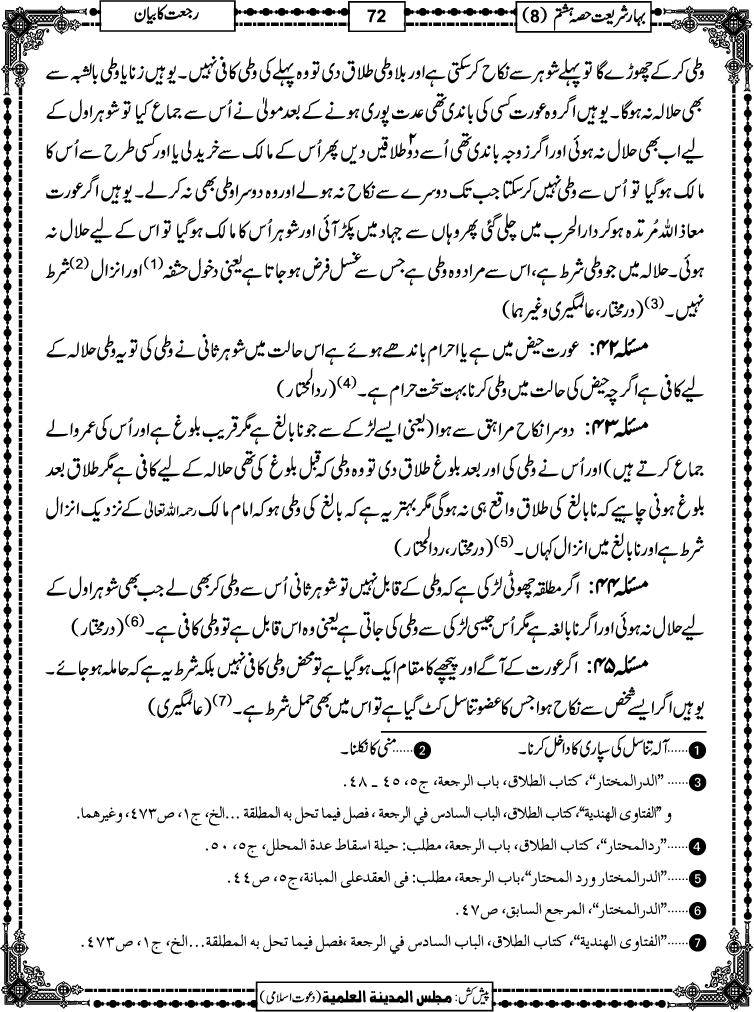 بہار شریعت حصہ ہشتم (8)
72
رجعت کا بیان
وطی کرکے چھوڑے گا تو پہلے شوہر سے نکاح کرسکتی ہے اور بلاوطی طلاق دی تو وہ پہلے کی وطی کافی نہیں۔ یوہیں زنا یا وطی بالشبہ سے
بھی حلالہ نہ ہوگا۔ یوہیں اگر وہ عورت کسی کی باندی تھی عدت پوری ہونے کے بعد مولیٰ نے اُس سے جماع کیا تو شوہر اول کے
لیے اب بھی حلال نہ ہوئی اور اگر زوجہ باندی تھی اُسے دو۲ طلاقیں دیں پھر اُس کے مالک سے خرید لی یا اور کسی طرح سے اُس کا
مالک ہوگیا تو اُس سے وطی نہیں کرسکتا جب تک دوسرے سے نکاح نہ ہولے اور وہ دوسرا وطی بھی نہ کرلے۔ یوہیں اگر عورت
معاذ اللہ مُرتدہ ہوکر دارالحرب میں چلی گئی پھر وہاں سے جہاد میں پکڑ آئی اور شوہر اُس کا مالک ہوگیا تو اس کے لیے حلال نہ
ہوئی۔ حلالہ میں جو وطی شرط ہے، اس سے مراد وہ وطی ہے جس سے غسل فرض ہوجاتا ہے یعنی دخول حشفہ (1) اور انزال (2) شرط
نہیں۔ (3) (درمختار، عالمگیری وغیرہما)
مسئلہ ۴۲: عورت حیض میں ہے یا احرام باندھے ہوئے ہے اس حالت میں شوہر ثانی نے وطی کی تو یہ وطی حلالہ کے
لیے کافی ہے اگرچہ حیض کی حالت میں وطی کرنا بہت سخت حرام ہے۔ (4) (ردالمحتار)
مسئلہ ۴۳: دوسرا نکاح مراہق سے ہوا (یعنی ایسے لڑکے سے جو نابالغ ہے مگر قریب بلوغ ہے اور اُس کی عمر والے
جماع کرتے ہیں) اور اُس نے وطی کی اور بعد بلوغ طلاق دی تو وہ وطی کہ قبل بلوغ کی تھی حلالہ کے لیے کافی ہے مگر طلاق بعد
بلوغ ہونی چاہیے کہ نابالغ کی طلاق واقع ہی نہ ہوگی مگر بہتر یہ ہے کہ بالغ کی وطی ہو کہ امام مالک رحمہ اللہ تعالیٰ کے نزدیک انزال
شرط ہے اور نابالغ میں انزال کہاں۔ (5) (درمختار، ردالمحتار)
مسئلہ ۴۴: اگر مطلقہ چھوٹی لڑکی ہے کہ وطی کے قابل نہیں تو شوہر ثانی اُس سے وطی کر بھی لے جب بھی شوہر اول کے
لیے حلال نہ ہوئی اور اگر نابالغہ ہے مگر اُس جیسی لڑکی سے وطی کی جاتی ہے یعنی وہ اس قابل ہے تو وطی کافی ہے۔ (6) (درمختار)
مسئلہ ۴۵: اگر عورت کے آگے اور پیچھے کا مقام ایک ہوگیا ہے تو محض وطی کافی نہیں بلکہ شرط یہ ہے کہ حاملہ ہوجائے۔
یوہیں اگر ایسے شخص سے نکاح ہوا جس کا عضو تناسل کٹ گیا ہے تو اس میں بھی حمل شرط ہے۔ (7) (عالمگیری)
1 ......آلہ تناسل کی سپاری کا داخل کرنا۔ 2 ......منی کا نکلنا۔
3 ......"الدرالمختار"، کتاب الطلاق، باب الرجعة، ج٥، ٤٥ ـ ٤٨.
و "الفتاوى الهندية"،کتاب الطلاق، الباب السادس في الرجعة ، فصل فيما تحل به المطلقة ...الخ، ج١، ص٤٧٣، وغيرهما.
4 ......"ردالمحتار"، کتاب الطلاق، باب الرجعة، مطلب: حيلة اسقاط عدة المحلل، ج٥، ٥٠.
5 ......"الدرالمختار ورد المحتار"،باب الرجعة، مطلب: فى العقدعلى المبانة،ج٥، ص٤٤.
6 ......"الدرالمختار"، المرجع السابق، ص٤٧.
7 ......"الفتاوى الهندية"، کتاب الطلاق، الباب السادس في الرجعة ،فصل فيما تحل به المطلقة...الخ، ج١، ص٤٧٣.
پیش کش: مجلس المدينة العلمية (دعوت اسلامی)